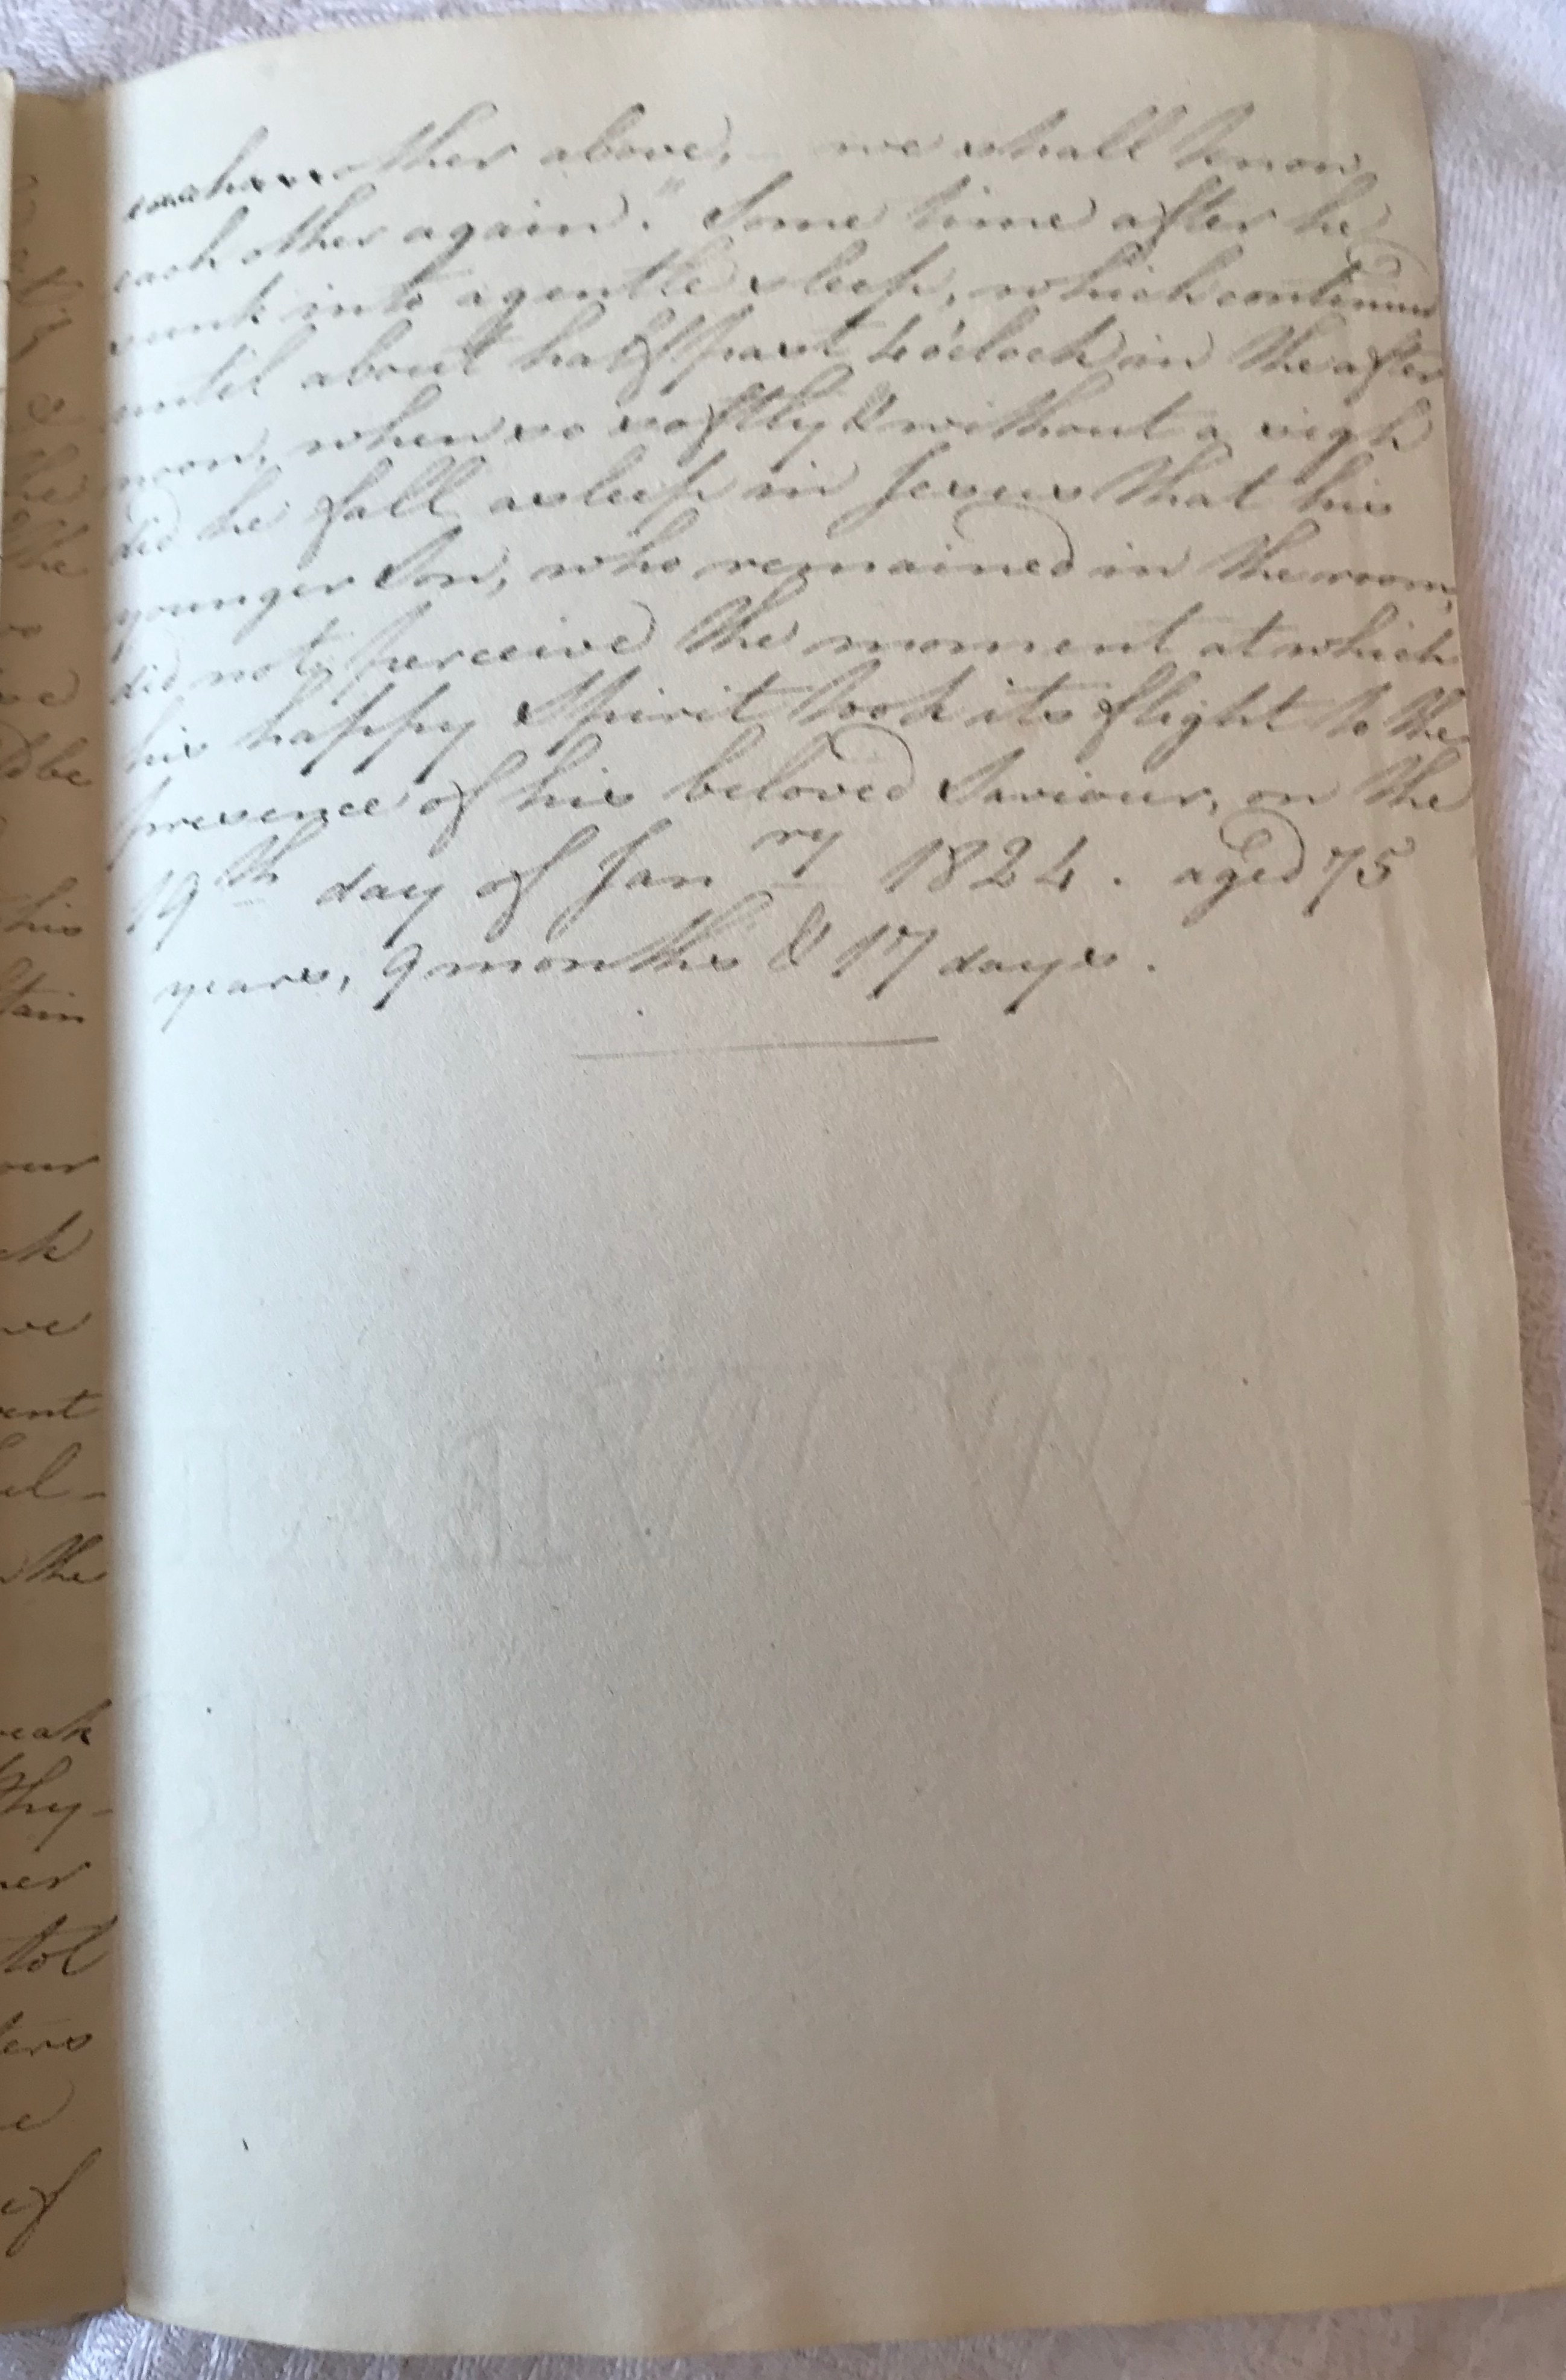 each another above, we shall know
each other again." Some time after he
sunk into a gentle sleep, which continued
until about half past 4 o'clock in the after
noon, when so softly & without a sigh
did he fall asleep in Jesus that his
younger Son, who remained in the room,
did not perceive the moment at which
his happy Spirit took its flight to the
presence of his beloved Saviour, on the
19th day of Janry 1824. aged 75
years, 9 months & 17 days.